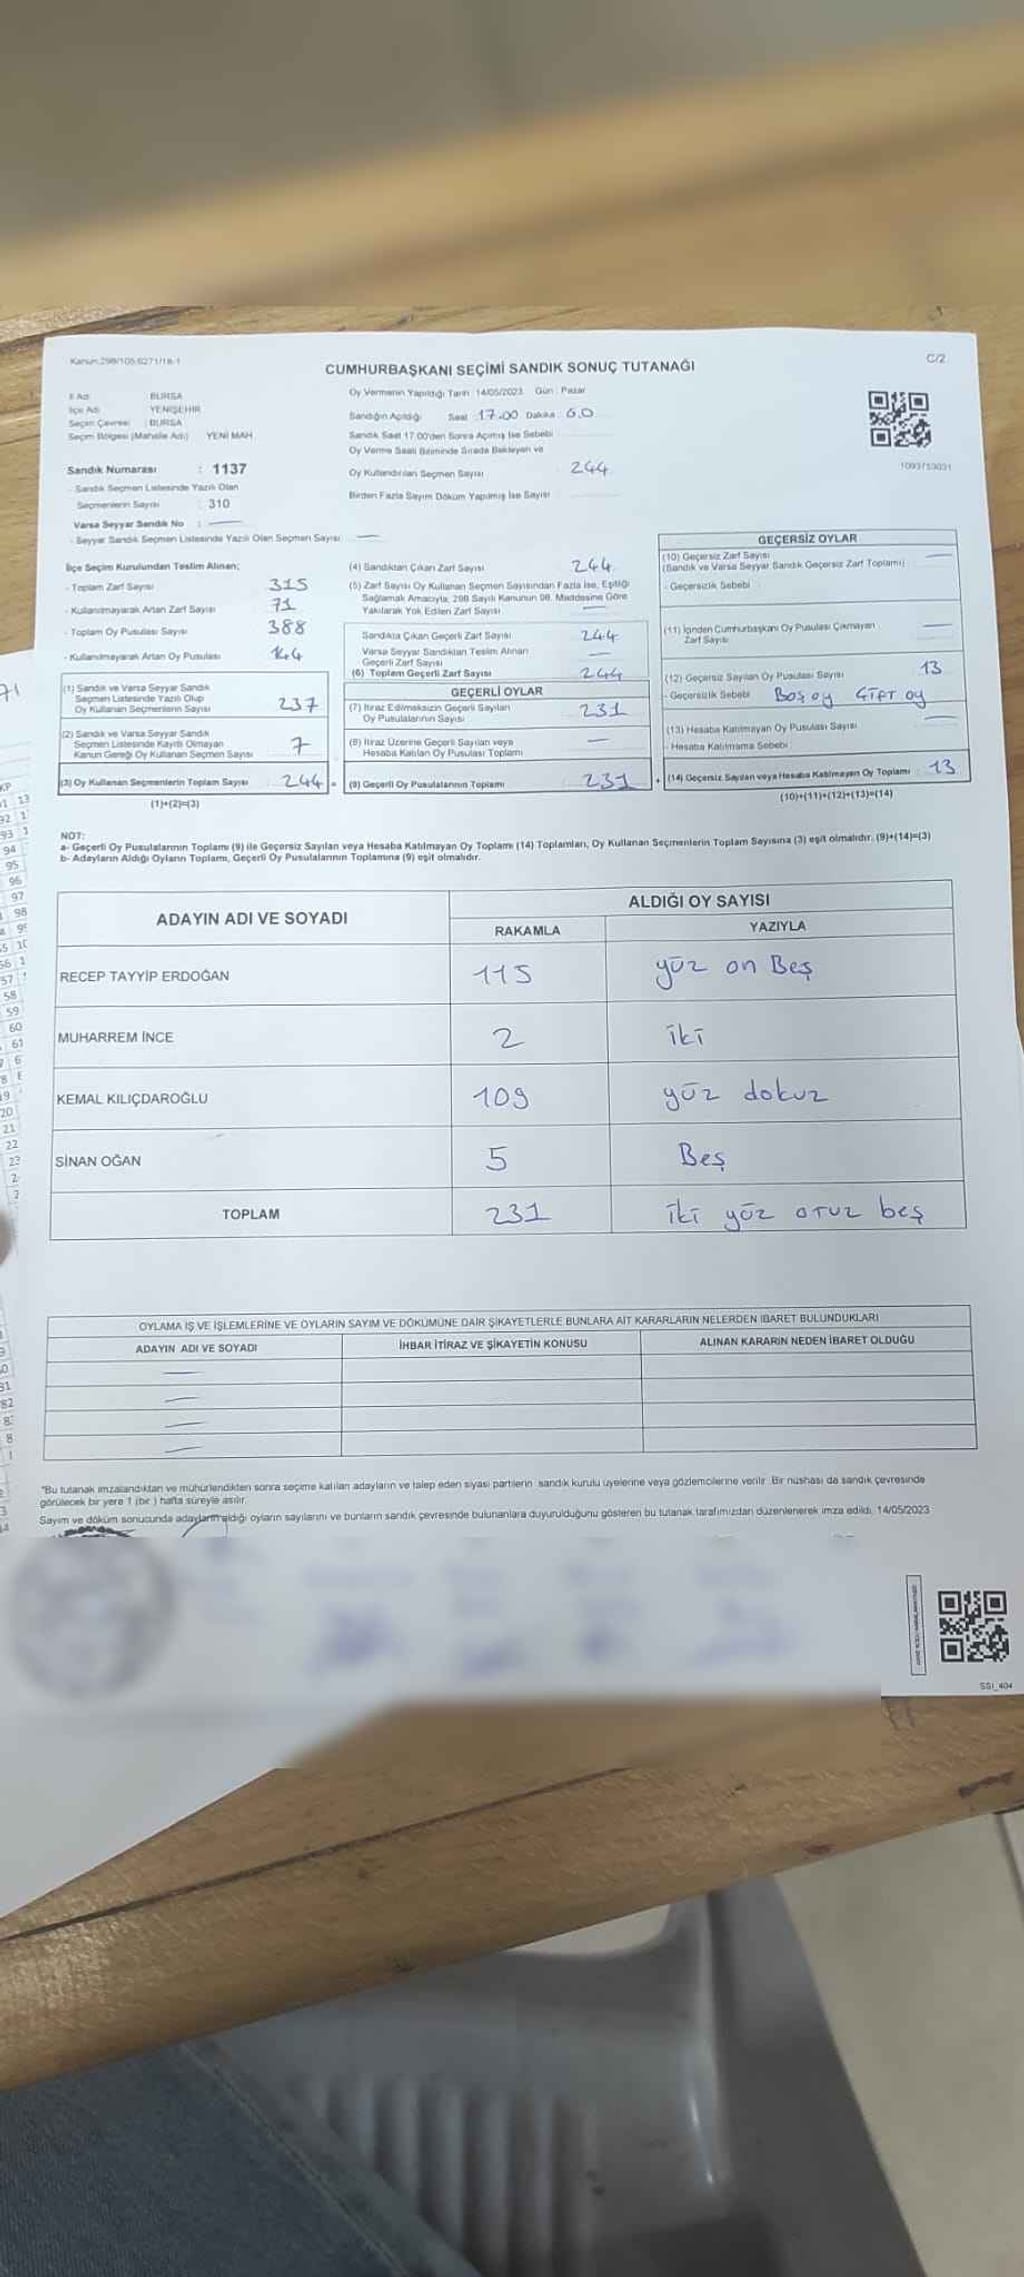 Kanun:298/105.6271/18-1
C/2
CUMHURBAŞKANI SEÇİMİ SANDIK SONUÇ TUTANAĞI
İl Adı : BURSA
İlçe Adı : YENİŞEHİR
Seçim Çevresi : BURSA
Seçim Bölgesi (Mahalle Adı) YENİ MAH
Oy Vermenin Yapıldığı Tarih : 14/05/2023 Gün : Pazar
Sandığın Açıldığı Saat 17.00 Dakika
Sandık Saat 17.00'den Sonra Açılmış İse Sebebi
Oy Verme Saati Bitiminde Sırada Bekleyen ve
Oy Kullandırılan Seçmen Sayısı 244
Birden Fazla Sayım Döküm Yapılmış İse Sayısı
1093753031
Sandık Numarası : 1137
- Sandık Seçmen Listesinde Yazılı Olan
Seçmenlerin Sayısı : 310
Varsa Seyyar Sandık No : —
- Seyyar Sandık Seçmen Listesinde Yazılı Olan Seçmen Sayısı —
İlçe Seçim Kurulundan Teslim Alınan;
- Toplam Zarf Sayısı 315
- Kullanılmayarak Artan Zarf Sayısı 71
- Toplam Oy Pusulası Sayısı 388
- Kullanılmayarak Artan Oy Pusulası 144
(1) Sandık ve Varsa Seyyar Sandık
Seçmen Listesinde Yazılı Olup
Oy Kullanan Seçmenlerin Sayısı 237
(2) Sandık ve Varsa Seyyar Sandık
Seçmen Listesinde Kayıtlı Olmayan
Kanun Gereği Oy Kullanan Seçmen Sayısı 7
(3) Oy Kullanan Seçmenlerin Toplam Sayısı 244 =
(1)+(2)=(3)
(4) Sandıktan Çıkan Zarf Sayısı 244
(5) Zarf Sayısı Oy Kullanan Seçmen Sayısından Fazla İse, Eşitliği
Sağlamak Amacıyla, 298 Sayılı Kanunun 98. Maddesine Göre
Yakılarak Yok Edilen Zarf Sayısı —
Sandıkta Çıkan Geçerli Zarf Sayısı 244
Varsa Seyyar Sandıktan Teslim Alınan
Geçerli Zarf Sayısı —
(6) Toplam Geçerli Zarf Sayısı 244
GEÇERLİ OYLAR
(7) İtiraz Edilmeksizin Geçerli Sayılan
Oy Pusulalarının Sayısı 231
(8) İtiraz Üzerine Geçerli Sayılan veya
Hesaba Katılan Oy Pusulası Toplamı —
(9) Geçerli Oy Pusulalarının Toplamı 231 +
GEÇERSİZ OYLAR
(10) Geçersiz Zarf Sayısı
(Sandık ve Varsa Seyyar Sandık Geçersiz Zarf Toplamı) —
- Geçersizlik Sebebi :
(11) İçinden Cumhurbaşkanı Oy Pusulası Çıkmayan
Zarf Sayısı —
(12) Geçersiz Sayılan Oy Pusulası Sayısı 13
- Geçersizlik Sebebi Boş oy Çift oy
(13) Hesaba Katılmayan Oy Pusulası Sayısı —
- Hesaba Katılmama Sebebi
(14) Geçersiz Sayılan veya Hesaba Katılmayan Oy Toplamı 13
(10)+(11)+(12)+(13)=(14)
NOT:
a- Geçerli Oy Pusulalarının Toplamı (9) ile Geçersiz Sayılan veya Hesaba Katılmayan Oy Toplamı (14) Toplamları, Oy Kullanan Seçmenlerin Toplam Sayısına (3) eşit olmalıdır. (9)+(14)=(3)
b- Adayların Aldığı Oyların Toplamı, Geçerli Oy Pusulalarının Toplamına (9) eşit olmalıdır.
ADAYIN ADI VE SOYADI
ALDIĞI OY SAYISI
RAKAMLA YAZIYLA
RECEP TAYYİP ERDOĞAN 115 yüz on Beş
MUHARREM İNCE 2 iki
KEMAL KILIÇDAROĞLU 109 yüz dokuz
SİNAN OĞAN 5 Beş
TOPLAM 231 iki yüz otuz beş
OYLAMA İŞ VE İŞLEMLERİNE VE OYLARIN SAYIM VE DÖKÜMÜNE DAİR ŞİKAYETLERLE BUNLARA AİT KARARLARIN NELERDEN İBARET BULUNDUKLARI
ADAYIN ADI VE SOYADI İHBAR İTİRAZ VE ŞİKAYETİN KONUSU ALINAN KARARIN NEDEN İBARET OLDUĞU
—
—
—
—
"Bu tutanak imzalandıktan ve mühürlendikten sonra seçime katılan adayların ve talep eden siyasi partilerin sandık kurulu üyelerine veya gözlemcilerine verilir. Bir nüshası da sandık çevresinde
görülecek bir yere 1 (bir) hafta süreyle asılır.
Sayım ve döküm sonucunda adayların aldığı oyların sayılarını ve bunların sandık çevresinde bulunanlara duyurulduğunu gösteren bu tutanak tarafımızdan düzenlenerek imza edildi. 14/05/2023
SSI_404